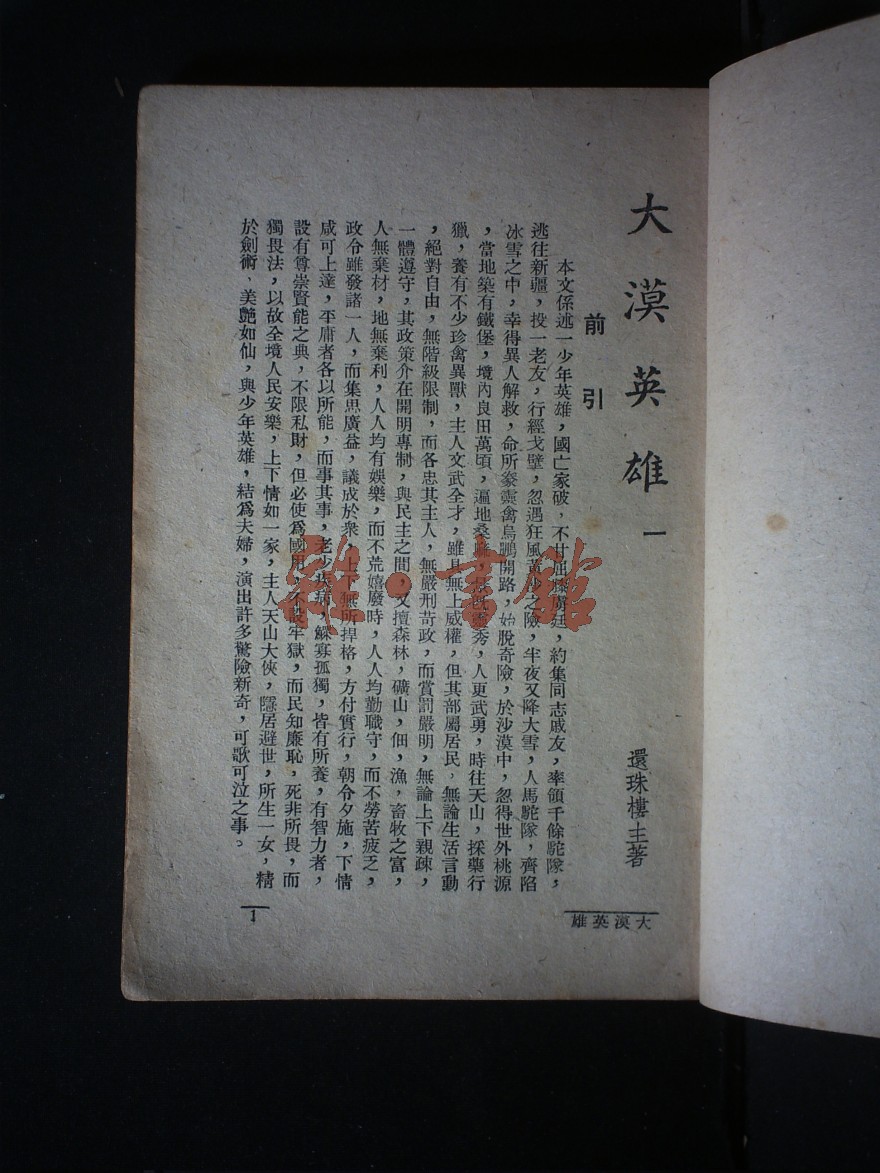 大漠英雄 一
還珠樓主著
前引
本文係述一少年英雄，國亡家破，不甘屈膝虜廷，約集同志戚友，率領千餘駝隊，
逃往新疆，投一老友，行經戈壁，忽遇狂風黃沙之險，半夜又降大雪，人馬駝隊，齊陷
冰雪之中，幸得異人解救，命所豢靈禽烏鵬開路，始脫奇險，於沙漠中，忽得世外桃源
，當地築有鐵堡，境內良田萬頃，遍地桑麻，秀，人更武勇，時往天山，採藥行
獵，養有不少珍禽異獸，主人文武全才，雖具無上威權，但其部屬居民，無論生活言動
，絕對自由，無階級限制，而各忠其主人，無嚴刑苛政，而賞罰嚴明，無論上下親疎，
一體遵守，其政策介在開明專制，與民主之間，又擅森林，礦山，佃，漁，畜牧之富，
人無棄材，地無棄利，人人均有娛樂，而不荒嬉廢時，人人均勤職守，而不勞苦疲乏，
政令雖發諸一人，而集思廣益，議成於衆，上下無所捍格，方付實行，朝令夕施，下情
咸可上達，平庸者各以所能，而事其事，老少疾病，鰥寡孤獨，皆有所養，有智力者，
設有尊崇賢能之典，不限私財，但必使爲國用，不設牢獄，而民知廉恥，死非所畏，而
獨畏法，以故全境人民安樂，上下情如一家，主人天山大俠，隱居避世，所生一女，精
於劍術，美艷如仙，與少年英雄，結爲夫婦，演出許多驚險新奇，可歌可泣之事。
大漠英雄
1
雜·書館